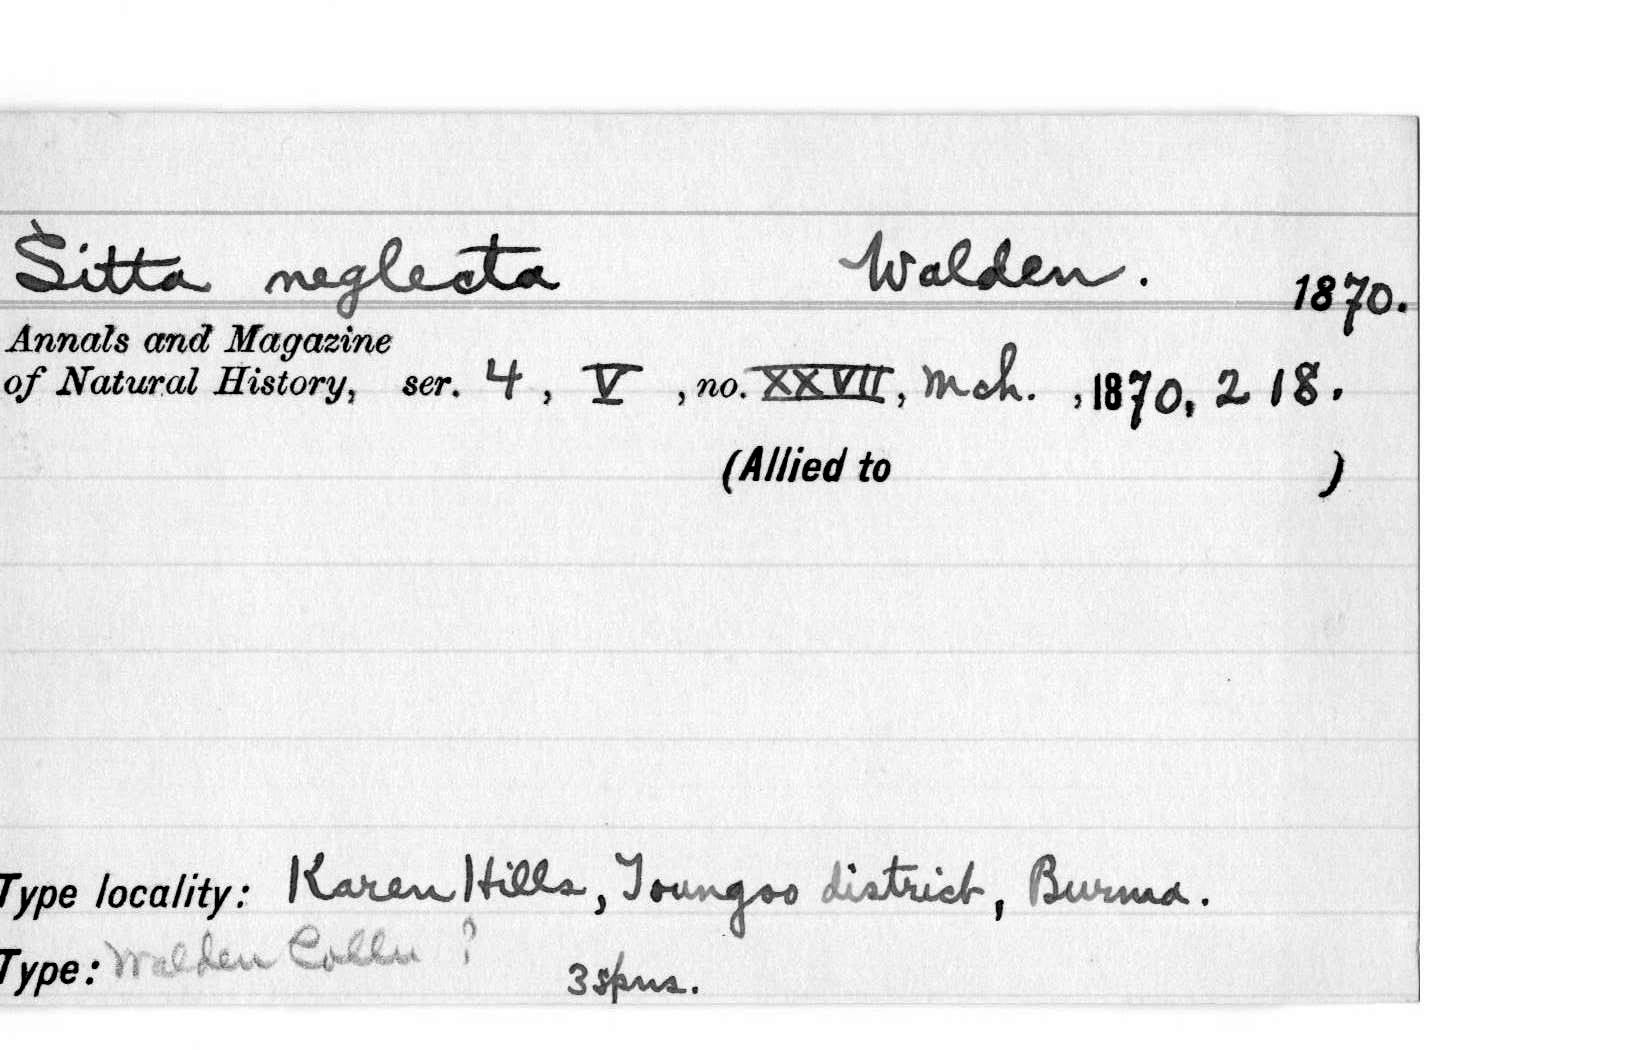 Sitta neglecta Walden. 1870.
Annals and Magazine
of Natural History, ser. 4, V, no. XXVII, Mch., 1870, 218.
(Allied to )
Type locality: Karen Hills, Toungoo district, Burma.
Type: Walden Colln ? 3 spns.